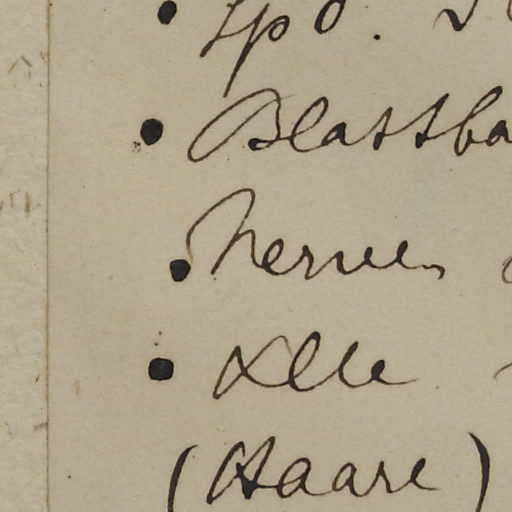 • Blassba
• Nerven
• Alle
(Haare)